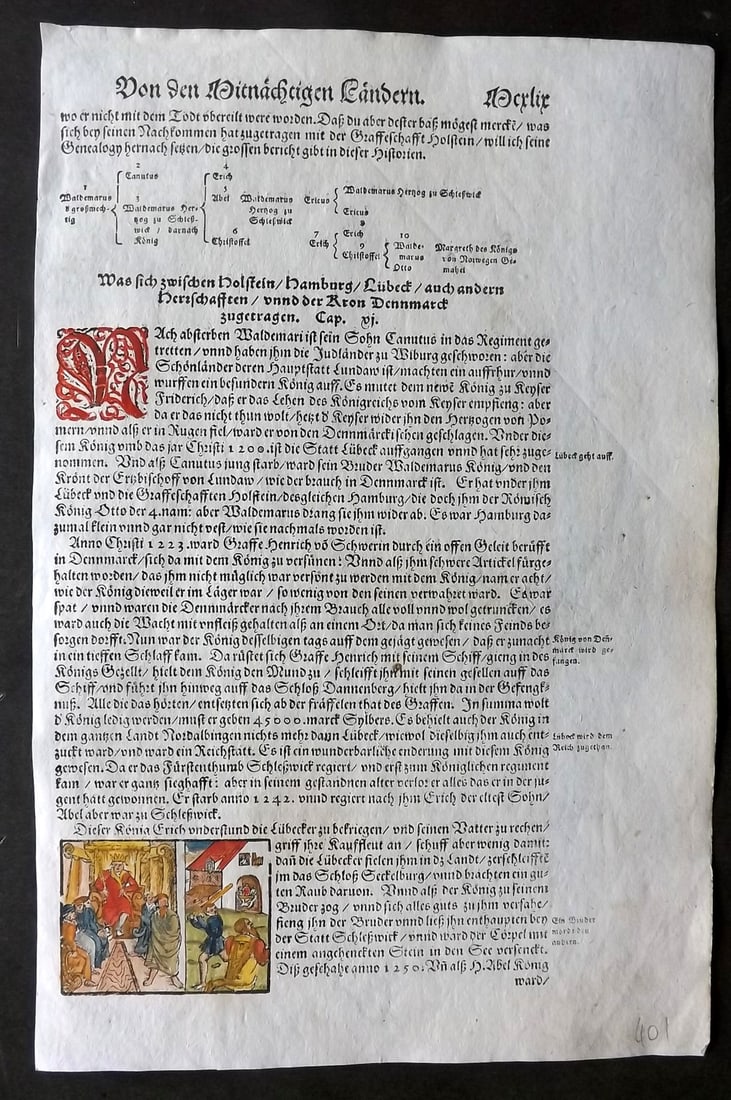 Von den Mitnächtigen Ländern. Mcxlix
wo er nicht mit dem Todt vbereilt were worden. Daß du aber dester baß mögest merckē/ was
sich bey seinen Nachkommen hat zugetragen mit der Graffeschafft Holstein/ will ich seine
Genealogy hernach setzen/ die grossen bericht gibt in dieser Historien.
1
Waldemarus
d großmech-
tig
2
Canutus
3
Waldemarus Her-
tzog zu Schleß-
wick / darnach
König
4
Erich
5
Abel
6
Christoffel
Waldemarus
Hertzog zu
Schleßwick
Ericus
Waldemarus Hertzog zu Schleßwick
Ericus
7
Erich
8
Erich
9
Christoffel
10
Walde-
marus
Otto
Margreth des Königs
von Norwegen Ge-
mahel
Was sich zwischen Holstein/ Hamburg/ Lübeck/ auch andern
Herrschafften / vnnd der Kron Dennmarck
zugetragen. Cap. xj.
NAch absterben Waldemari ist sein Sohn Canutus in das Regiment ge-
tretten/ vnnd haben jhm die Judländer zu Wiburg geschworen: aber die
Schönländer deren Hauptstatt Lundaw ist/ machten ein auffrhur/ vnnd
wurffen ein besundern König auff. Es mutet dem newē König zu Keyser
Friderich/ daß er das Lehen des Königreichs vom Keyser empfieng: aber
da er das nicht thun wolt/ hetzt d Keyser wider jhn den Hertzogen voñ Po-
mern/ vnnd alß er in Rugen fiel/ ward er von den Dennmärckischen geschlagen. Vnder die-
sem König vmb das jar Christi 1200. ist die Statt Lübeck auffgangen vnnd hat sehr zuge-
nommen. Vnd alß Canutus jung starb/ ward sein Bruder Waldemarus König/ vnd den
Krönt der Ertzbischoff von Lundaw/ wie der brauch in Dennmarck ist. Er hat vnder jhm
Lübeck vnd die Graffeschafften Holstein/ desgleichen Hamburg/ die doch jhm der Römisch
König Otto der 4. nam: aber Waldemarus drang sie jhm wider ab. Es war Hamburg da-
zumal klein vnnd gar nicht vest/ wie sie nachmals worden ist.
Lübeck geht auff.
Anno Christi 1223. ward Graffe Henrich vō Schwerin durch ein offen Geleit berüfft
in Dennmarck/ sich da mit dem König zu versünen: Vnnd alß jhm schwere Artickel fürge-
halten worden/ das jhm nicht müglich war versönt zu werden mit dem König/ nam er acht/
wie der König dieweil er im Läger war / so wenig von den seinen verwahret ward. Es war
spat / vnnd waren die Dennmärcker nach jhrem Brauch alle voll vnnd wol getruncken/ es
ward auch die Wacht mit vnfleiß gehalten alß an einem Ort/ da man sich keines Feinds be-
sorgen dorfft. Nun war der König desselbigen tags auff dem gejägt gewesen/ daß er zunacht
in ein tieffen Schlaff kam. Da rüstet sich Graffe Henrich mit seinem Schiff/ gieng in des
Königs Gezellt/ hielt dem König den Mund zu / schleifft jhn mit seinen gesellen auff das
Schiff/ vnd führt jhn hinweg auff das Schloß Dannenberg/ hielt jhn da in der Gefengk-
nuß. Alle die das hörten/ entsetzten sich ab der fräffelen that des Graffen. In summa wolt
d König ledig werden/ must er geben 45000. marck Sylbers. Es behielt auch der König in
dem gantzen Landt Nordalbingen nichts mehr dann Lübeck/ wiewol dieselbig jhm auch ent-
zuckt ward/ vnd ward ein Reichstatt. Es ist ein wunderbarliche enderung mit diesem König
gewesen. Da er das Fürstenthumb Schleßwick regiert/ vnd erst zum Königlichen regiment
kam / war er gantz sieghafft: aber in seinem gestandnen alter verlor er alles das er in der ju-
gent hatt gewonnen. Er starb anno 1242. vnnd regiert nach jhm Erich der eltest Sohn/
Abel aber war zu Schleßwick.
König von Deñ-
marck wird ge-
fangen.
Lübeck wird dem
Reich zugethan.
Dieser König Erich vnderstund die Lübecker zu bekriegen/ vnd seinen Vatter zu rechen/
griff jhre Kauffleut an / schuff aber wenig damit:
dañ die Lübecker fielen jhm in dz Landt/ zerschleifftē
jm das Schloß Seckelburg/ vnnd brachten ein gu-
ten Raub daruon. Vnnd alß der König zu seinem
Bruder zog / vnnd sich alles guts zu jhm versahe/
fieng jhn der Bruder vnnd ließ jhn enthaupten bey
der Statt Schleßwick/ vnnd ward der Cörpel mit
einem angehenckten Stein in den See versenckt.
Diß geschahe anno 1250. Vñ alß H. Abel König
ward/
Ein Bruder
mördt den
andern.
401